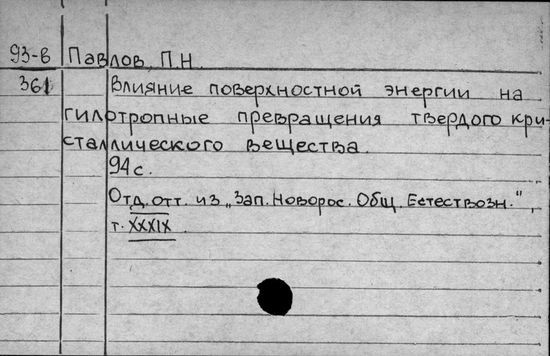 93-в Павлов, П.Н.
361 Влияние поверхностной энергии на
гилотропные превращения твердого кри-
сталлического вещества.
94 с.
Отд. отт. из „Зап. Новорос. Общ. Естествозн.",
т. XXXIX